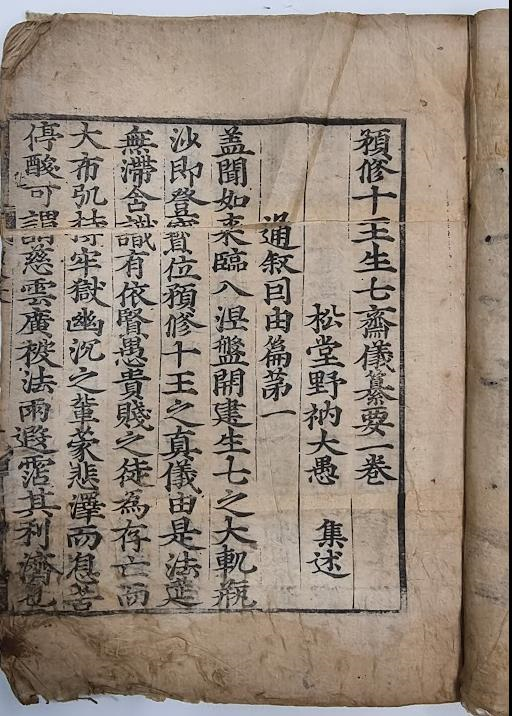 預修十王生七齋儀纂要一卷
松堂野衲大愚 集述
通叙因由篇第一
盖聞如来臨入涅盤開建生七之大軌瓶
沙即登寳位預修十王之真儀由是法筵
無滯含識有依賢愚貴賤之徒為存亡而
大布弘持牢獄幽沉之軰蒙悲澤而息苦
停酸可謂慈雲廣被法雨遐霑其利濟也